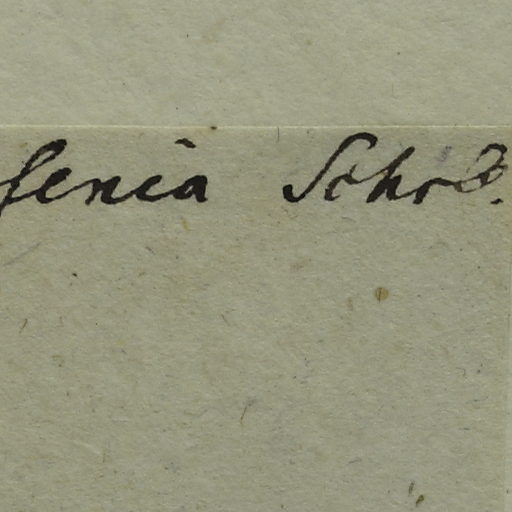 senia Schrd.